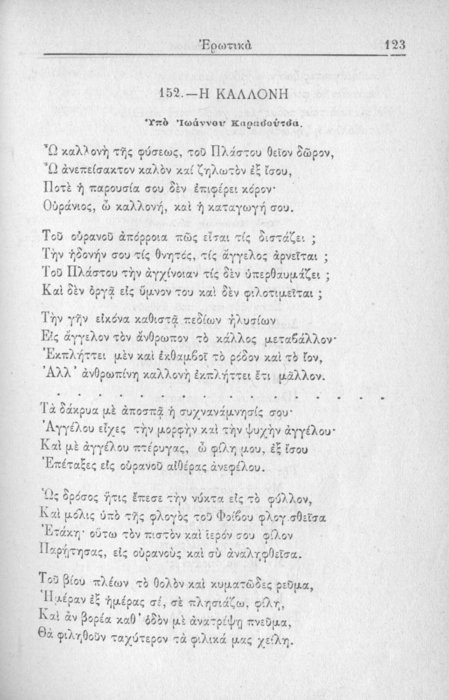 Ἐρωτικὰ 123
152.—Η ΚΑΛΛΟΝΗ
Ὑπὸ Ἰωάννου Καρασούτσα.
Ὦ καλλονὴ τῆς φύσεως, τοῦ Πλάστου θεῖον δῶρον,
Ὦ ἀνεπείσακτον καλὸν καί ζηλωτὸν ἐξ ἴσου,
Ποτὲ ἡ παρουσία σου δὲν ἐπιφέρει κόρον·
Οὐράνιος, ὦ καλλονή, καὶ ἡ καταγωγή σου.
Τοῦ οὐρανοῦ ἀπόρροια πῶς εἶσαι τίς διστάζει ;
Τὴν ἡδονήν σου τίς θνητός, τίς ἄγγελος ἀρνεῖται ;
Τοῦ Πλάστου τὴν ἀγχίνοιαν τίς δὲν ὑπερθαυμάζει ;
Καὶ δὲν ὀργᾷ εἰς ὕμνον του καὶ δὲν φιλοτιμεῖται ;
Τὴν γῆν εἰκόνα καθιστᾷ πεδίων ἠλυσίων
Εἰς ἄγγελον τὸν ἄνθρωπον τὸ κάλλος μεταβάλλον·
Ἐκπλήττει μὲν καὶ ἐκθαμβοῖ τὸ ρόδον καὶ τὸ ἴον,
Ἀλλ' ἀνθρωπίνη καλλονὴ ἐκπλήττει ἔτι μᾶλλον.
. . . . . . . . . . . . . . . .
Τὰ δάκρυα μὲ ἀποσπᾷ ἡ συχνανάμνησίς σου·
Ἀγγέλου εἶχες τὴν μορφὴν καὶ τὴν ψυχὴν ἀγγέλου·
Καὶ μὲ ἀγγέλου πτέρυγας, ὦ φίλη μου, ἐξ ἴσου
Ἐπέταξες εἰς οὐρανοῦ αἰθέρας ἀνεφέλου.
Ὡς δρόσος ἥτις ἔπεσε τὴν νύκτα εἰς τὸ φύλλον,
Καὶ μόλις ὑπὸ τῆς φλογὸς τοῦ Φοίβου φλογ.σθεῖσα
Ἐτάκη· οὕτω τὸν πιστὸν καὶ ἱερόν σου φίλον
Παρῄτησας, εἰς οὐρανοὺς καὶ σὺ ἀναληφθεῖσα.
Τοῦ βίου πλέων τὸ θολὸν καὶ κυματῶδες ρεῦμα,
Ἡμέραν ἐξ ἡμέρας σέ, σὲ πλησιάζω, φίλη,
Καὶ ἂν βορέα καθ' ὁδὸν μὲ ἀνατρίψῃ πνεῦμα,
Θὰ φιληθοῦν ταχύτερον τὰ φιλικά μας χείλη.